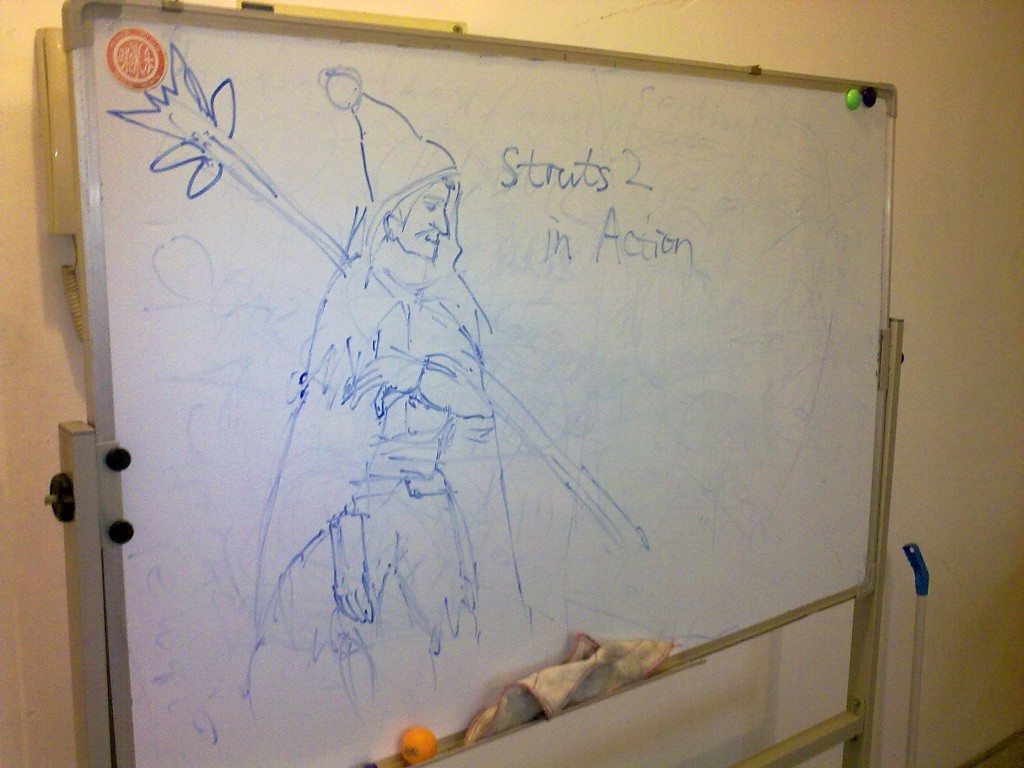 Struts 2
in Action